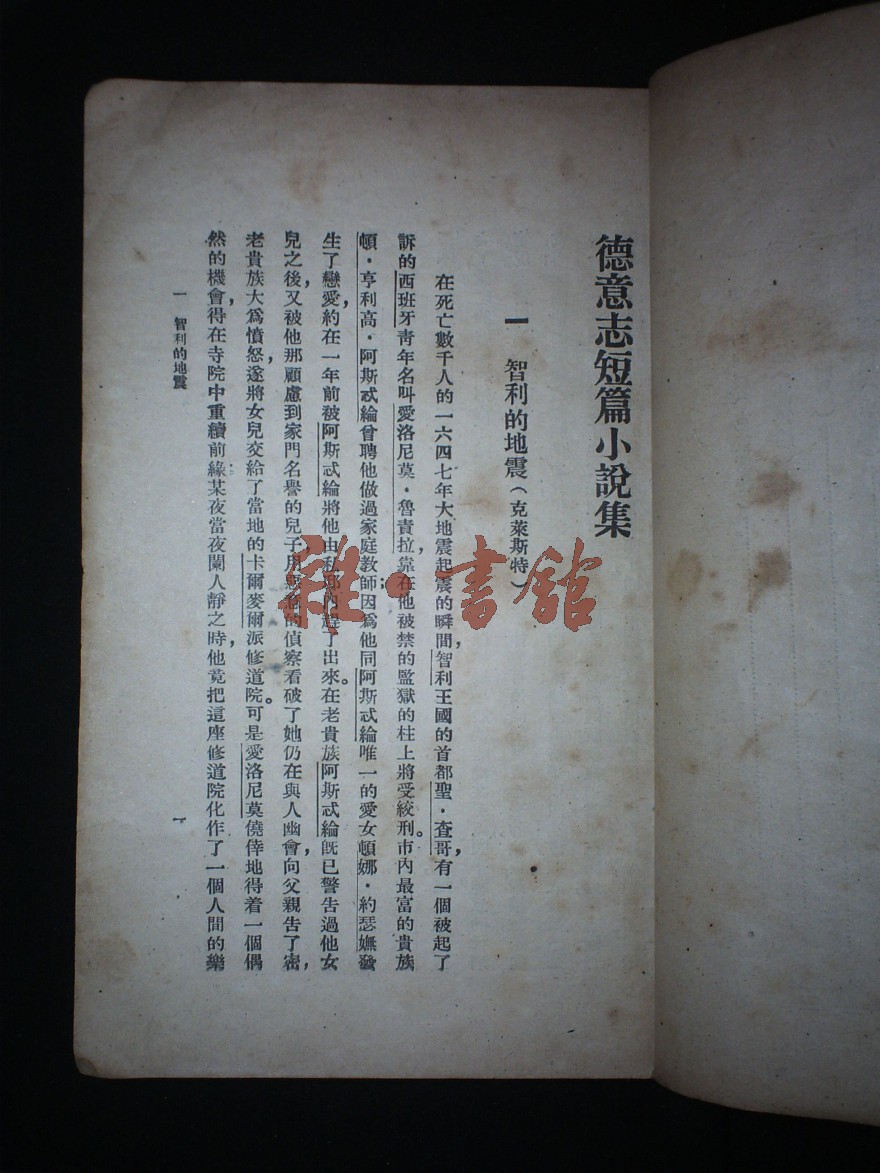 德意志短篇小說集
一 智利的地震(克萊斯特)
在死亡數千人的一六四七年大地震起震的瞬間,智利王國的首都聖·查哥,有一個被起了
訴的西班牙靑年名叫愛洛尼莫·魯責拉,靠在他被禁的監獄的柱上將受絞刑。市內最富的貴族
頓·亨利高·阿斯忒綸曾聘他做過家庭教師;因爲他同阿斯忒綸唯一的愛女頓娜·約瑟嫵發
生了戀愛,約在一年前被阿斯忒綸將他由私邸內趕了出來。在老貴族阿斯忒綸旣已警告過他女
兒之後,又被他那顧慮到家門名譽的兒子用惡意的偵察看破了她仍在與人幽會,向父親告了密,
老貴族大爲憤怒,遂將女兒交給了當地的卡爾麥爾派修道院。可是愛洛尼莫僥倖地得着一個偶
然的機會,得在寺院中重續前緣,某夜當夜闌人靜之時,他竟把這座修道院化作了一個人間的樂
一 智利的地震
一
雜·書館